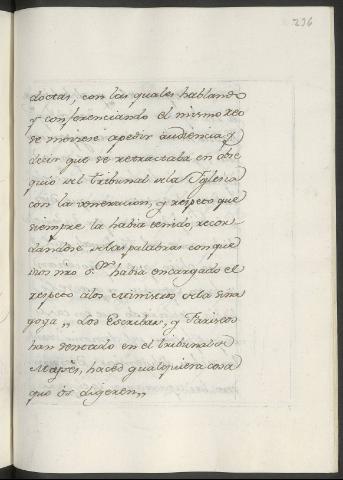 236
doctas, con las quales hablando
y conferenciando el mismo reo
se moviese apedir audiencia, y
decir que se retractaba en obse
quio del tribunal dela Yglesia
con la veneracion, y respeto que
siempre la habia tenido, recor
dandose delas palabras con que
Dios nro S.or habia encargado el
respeto alos Ministros dela sina
goga „ Los Escribas, y Fariseos
han sentado en el tribunal de
Moyses, haced qualquiera cosa
que os digeren„